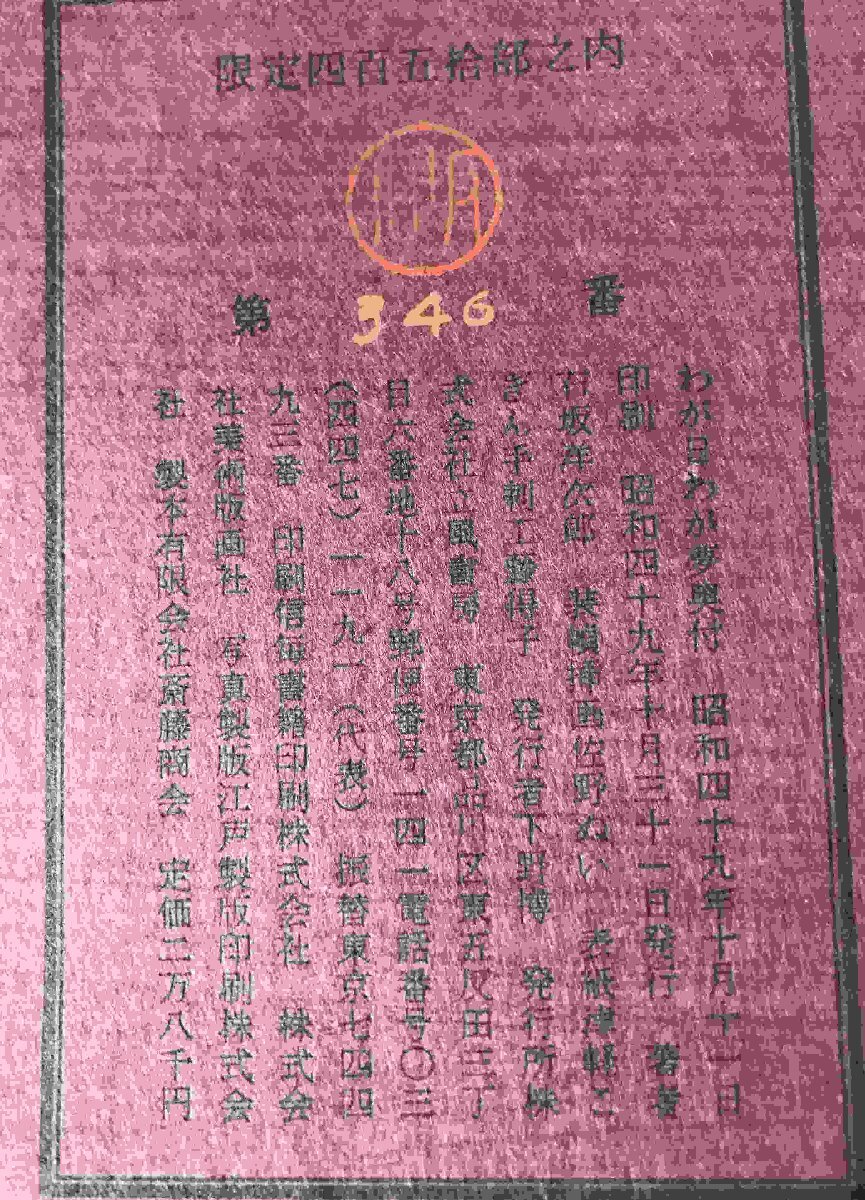 限定四百五拾部之内
第 346 番
わが日わが夢奥付 昭和四十九年十月十一日
印刷 昭和四十九年十月三十一日発行 著者
石坂洋次郎 装幀挿画佐野ぬい 表紙津軽こ
ぎん子刺工藤得子 発行者下野博 発行所株
式会社立風書房 東京都品川区東五反田三丁
目六番地十八号郵便番号一四一電話番号〇三
(四四七)一一九一(代表) 振替東京七四四
九三番 印刷信毎書籍印刷株式会社 株式会
社美術版画社 写真製版江戸製版印刷株式会
社 製本有限会社斎藤商会 定価二万八千円